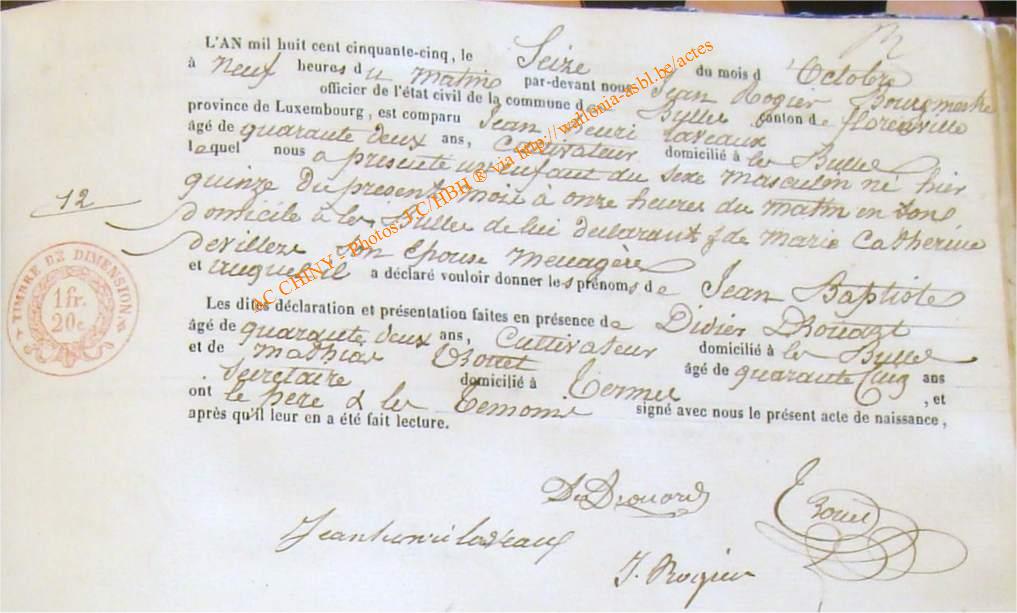 L'AN mil huit cent cinquante-cinq, le Seize du mois d'Octobre
à neuf heures du matin par-devant nous Jean Rogier Bourgmestre
officier de l'état civil de la commune de les Bulles canton de florenville
province de Luxembourg, est comparu Jean henri laveaux
âgé de quarante deux ans, Cultivateur domicilié à les Bulles
lequel nous a présenté un enfant du sexe masculin né hier
12
quinze du present mois à onze heures du matin en son
domicile à les Bulles de lui declarant & de Marie Catherine
son Epouse Menagère
et auquel il a déclaré vouloir donner les prénoms de Jean Baptiste
Les dites déclaration et présentation faites en présence de Didier
âgé de quarante deux ans, Cultivateur domicilié à les Bulles
et de Mathias âgé de quarante Cinq ans
Secretaire domicilié à Termes, et
ont le père & les temoins signé avec nous le présent acte de naissance,
après qu'il leur en a été fait lecture.
TIMBRE DE DIMENSION
1 fr.
20 c.
Jean henri laveaux
J. Rogier
AC CHINY - Photos: J.C/HBH ® via http://wallonia-asbl.be/actes